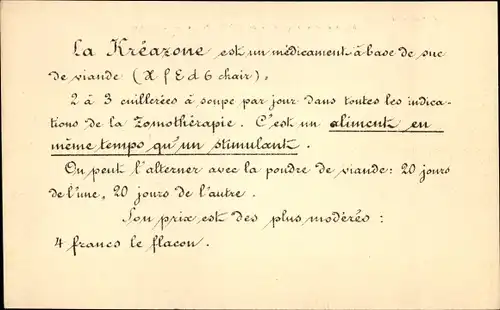 La Kréazone est un médicament à base de suc
de viande (X f E d 6 chair),
2 à 3 cuillerées à soupe par jour dans toutes les indica-
tions de la Zomothérapie. C'est un aliment en
même temps qu'un stimulant.
On peut l'alterner avec la poudre de viande: 20 jours
de l'une, 20 jours de l'autre.
Son prix est des plus modérés:
4 francs le flacon.